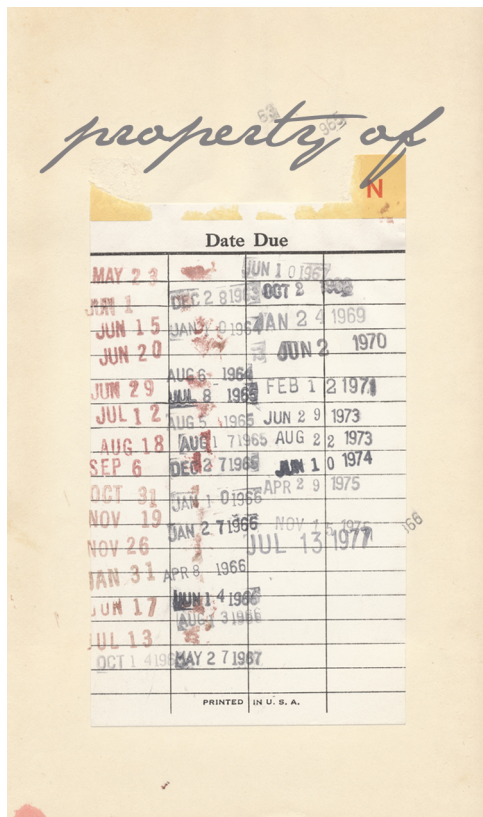 property of
N
Date Due
MAY 23
JUN 1
JUN 15
JUN 20
JUN 29
JUL 12
AUG 18
SEP 6
OCT 31
NOV 19
NOV 26
JAN 31
JUN 17
JUL 13
OCT 14 196
DEC 28 196
JAN 1964
AUG 6 1964
JUL 8 1965
AUG 5 1965
AUG 17 1965
DEC 27 1965
JAN 10 1966
JAN 27 1966
APR 8 1966
JUN 14 1966
AUG 3 1966
MAY 27 1967
JUN 10 1967
OCT 2
JAN 24 1969
JUN 2 1970
FEB 12 1971
JUN 29 1973
AUG 22 1973
JUN 10 1974
APR 29 1975
NOV 1975
JUL 13 1977
PRINTED IN U. S. A.